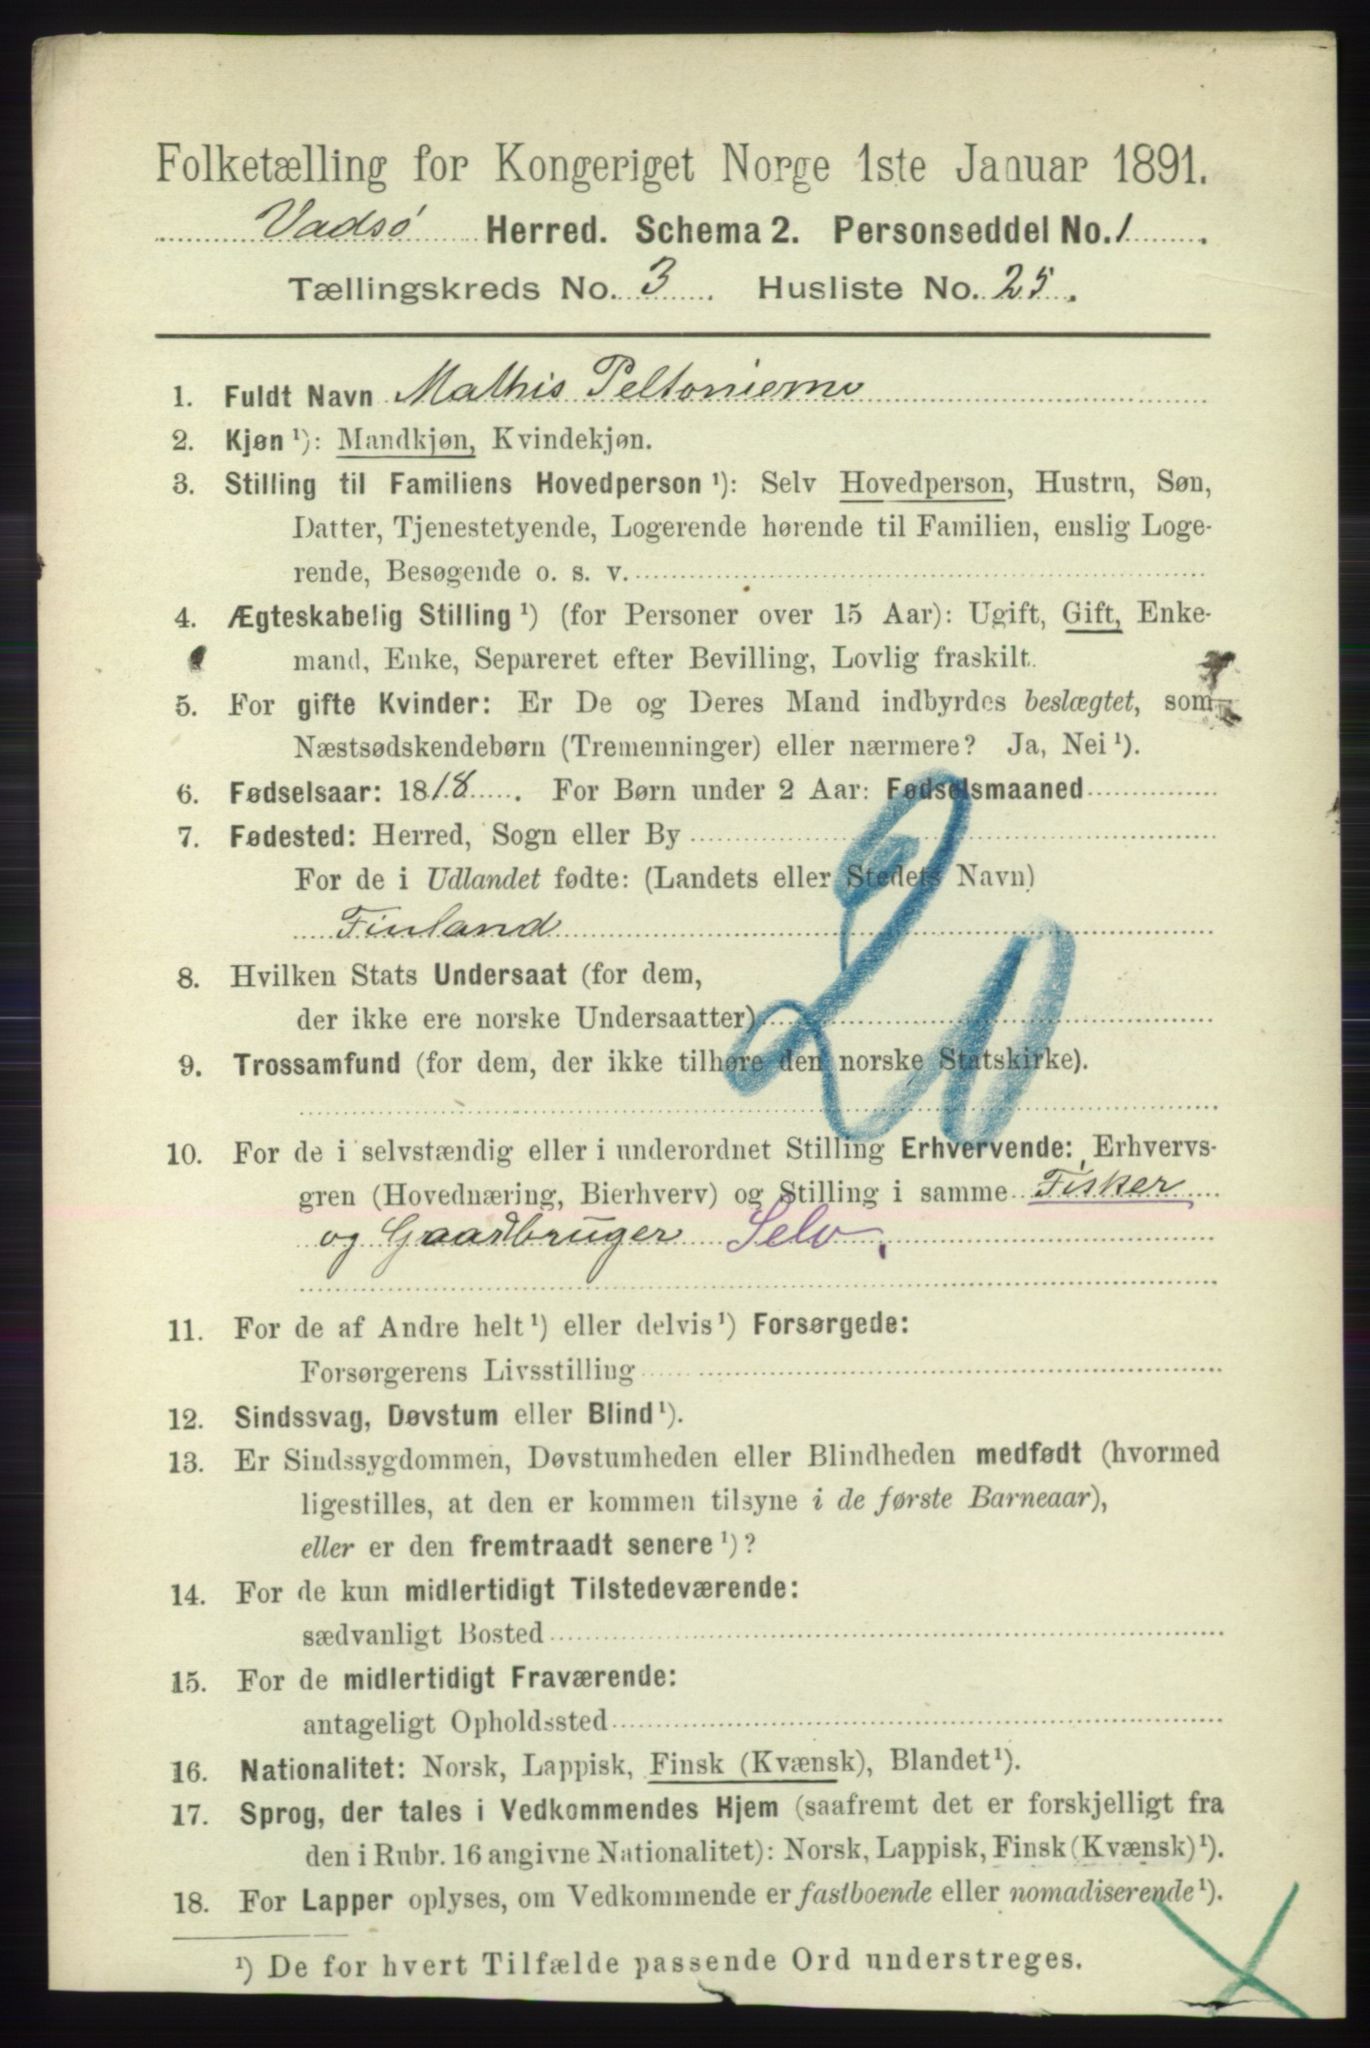 Folketælling for Kongeriget Norge 1ste Januar 1891.
Vadsø Herred. Schema 2. Personseddel No. 1.
Tællingskreds No. 3. Husliste No. 25.
1. Fuldt Navn Mathis Peltoniemi
2. Kjøn ¹): Mandkjøn, Kvindekjøn.
3. Stilling til Familiens Hovedperson ¹): Selv Hovedperson, Hustru, Søn,
Datter, Tjenestetyende, Logerende hørende til Familien, enslig Loge-
rende, Besøgende o. s. v.
4. Ægteskabelig Stilling ¹) (for Personer over 15 Aar): Ugift, Gift, Enke-
mand, Enke, Separeret efter Bevilling, Lovlig fraskilt.
5. For gifte Kvinder: Er De og Deres Mand indbyrdes beslægtet, som
Næstsødskendebørn (Tremenninger) eller nærmere? Ja, Nei ¹).
6. Fødselsaar: 1818. For Børn under 2 Aar: Fødselsmaaned
7. Fødested: Herred, Sogn eller By
For de i Udlandet fødte: (Landets eller Stedets Navn)
Finland
20
8. Hvilken Stats Undersaat (for dem,
der ikke ere norske Undersaatter)
9. Trossamfund (for dem, der ikke tilhøre den norske Statskirke).
10. For de i selvstændig eller i underordnet Stilling Erhvervende: Erhvervs-
gren (Hovednæring, Bierhverv) og Stilling i samme Fisker
og Gaardbruger Selv.
11. For de af Andre helt ¹) eller delvis ¹) Forsørgede:
Forsørgerens Livsstilling
12. Sindssvag, Døvstum eller Blind ¹).
13. Er Sindssygdommen, Døvstumheden eller Blindheden medfødt (hvormed
ligestilles, at den er kommen tilsyne i de første Barneaar),
eller er den fremtraadt senere ¹)?
14. For de kun midlertidigt Tilstedeværende:
sædvanligt Bosted
15. For de midlertidigt Fraværende:
antageligt Opholdssted
16. Nationalitet: Norsk, Lappisk, Finsk (Kvænsk), Blandet ¹).
17. Sprog, der tales i Vedkommendes Hjem (saafremt det er forskjelligt fra
den i Rubr. 16 angivne Nationalitet): Norsk, Lappisk, Finsk (Kvænsk) ¹).
18. For Lapper oplyses, om Vedkommende er fastboende eller nomadiserende ¹).
¹) De for hvert Tilfælde passende Ord understreges.